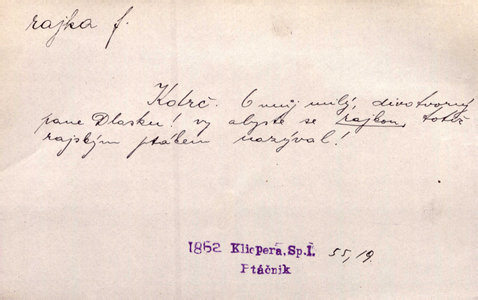 rajka f.
Kotrč. O můj milý, divotvorný
pane Dlasku! vy abyste se rajkou, totiž
rajským ptákem nazýval!
1862 Klicpera, Sp.I. 55,19.
Ptáčník